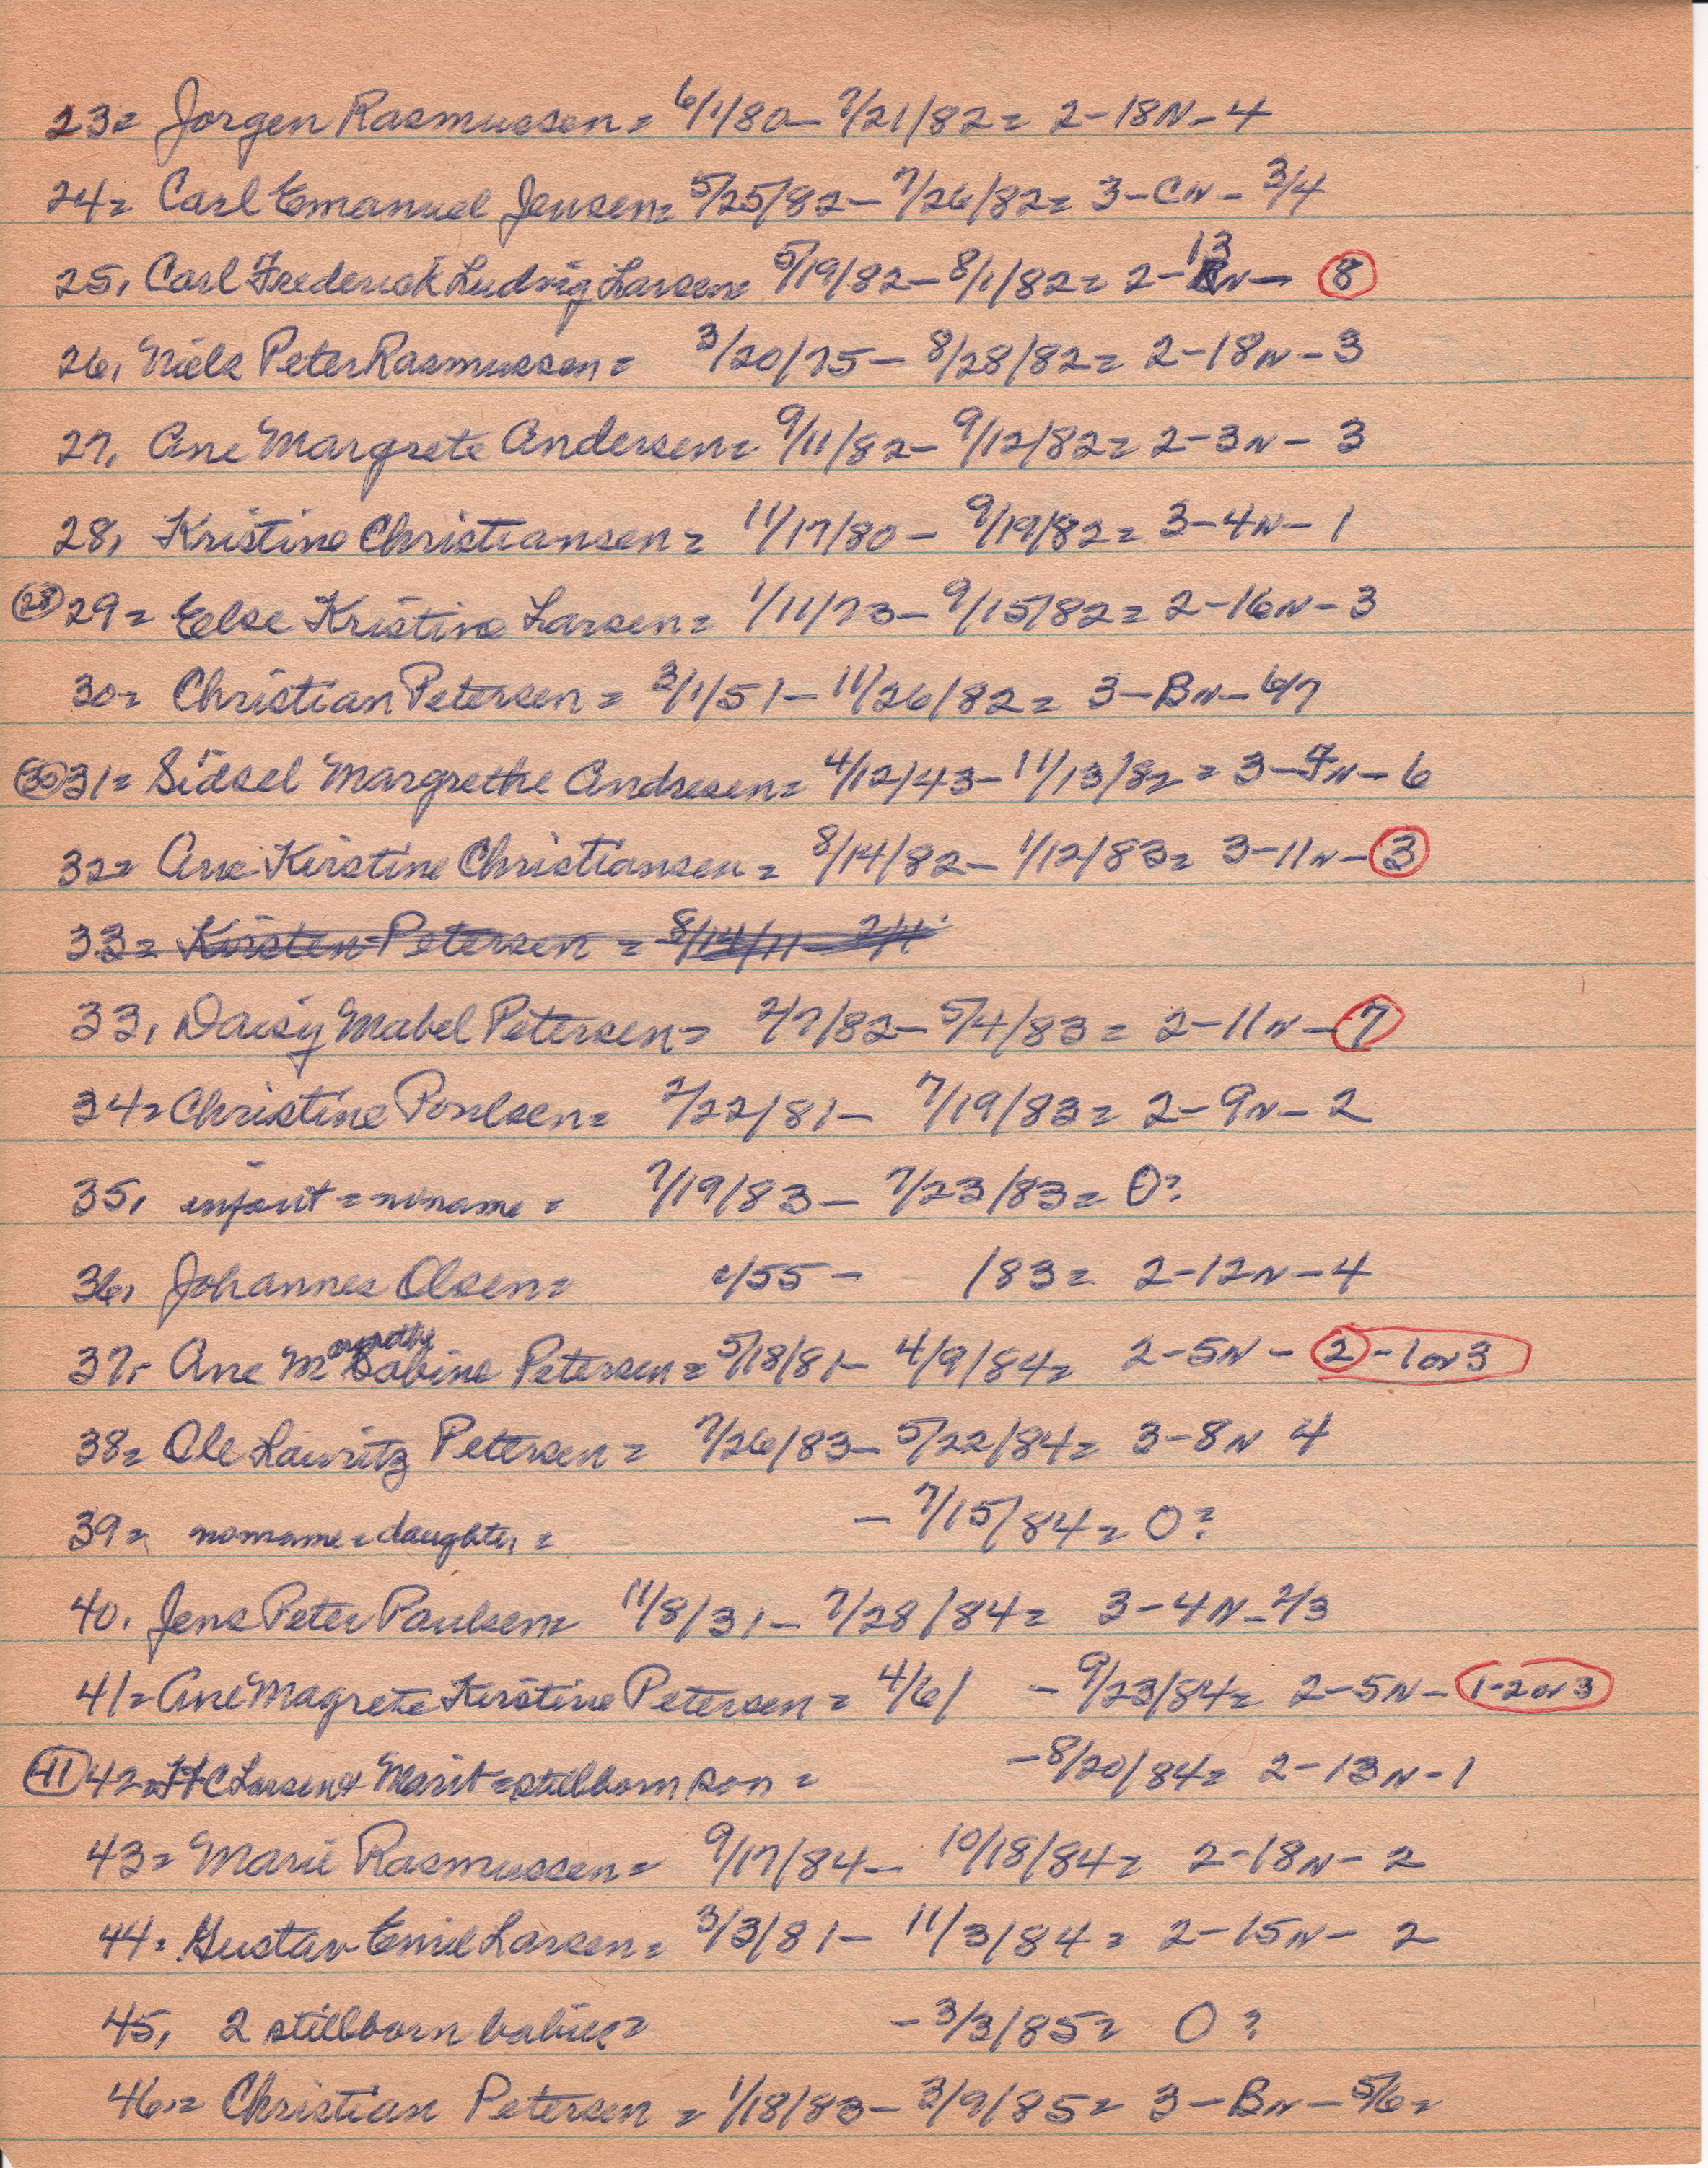 23= Jorgen Rasmussen = 6/1/80 - 7/21/82 = 2-18N-4
24= Carl Emanuel Jensen= 5/25/82 - 7/26/82= 3-CN-3/4
25, Carl Frederick Ludvig Larsen= 5/19/82 - 8/1/82= 2-13N- 8
26, Niels Peter Rasmussen = 3/20/75 - 8/28/82= 2-18N-3
27, Ane Margrete Andersen= 9/11/82 - 9/12/82= 2-3N-3
28, Kristine Christiansen = 11/17/80 - 9/19/82= 3-4N-1
(28) 29= Else Kristine Larsen= 1/11/73 - 9/15/82= 2-16N-3
30= Christian Petersen = 3/1/51 - 11/26/82= 3-BN-6/7
(30) 31= Sidsel Margrethe Andresen= 4/12/43 - 11/13/82= 3-7N-6
32= Ane Kirstine Christiansen = 8/14/82 - 1/12/83= 3-11N-3
33= Kirsten Petersen = 8/14/11 - 2/1
33, Daisy Mabel Petersen= 2/7/82 - 5/4/83= 2-11N-7
34= Christine Poulsen= 2/22/81 - 7/19/83= 2-9N-2
35, infant = noname = 7/19/83 - 7/23/83= 0?
36, Johannes Olsen= /55 - /83= 2-12N-4
37- Ane Margrethe Sabine Petersen= 5/18/81 - 4/9/84= 2-5N- 2-1 or 3
38= Ole Lauritz Petersen = 7/26/83 - 5/22/84= 3-8N 4
39= noname = daughter, = - 7/15/84= 0?
40. Jens Peter Paulsen= 11/8/31 - 7/28/84= 3-4N-2/3
41= Ane Magrete Kirstine Petersen = 4/61 - 9/23/84= 2-5N- 1-2 or 3
(41) 42= H C Larsen & Marit = stillborn son = -8/20/84= 2-13N-1
43= Marie Rasmussen= 9/17/84 - 10/18/84= 2-18N-2
44= Gustav Emil Larsen= 3/3/81 - 11/3/84= 2-15N-2
45, 2 stillborn babies= - 3/3/85= 0?
46= Christian Petersen = 1/18/83 - 3/9/85= 3-BN-5/6=